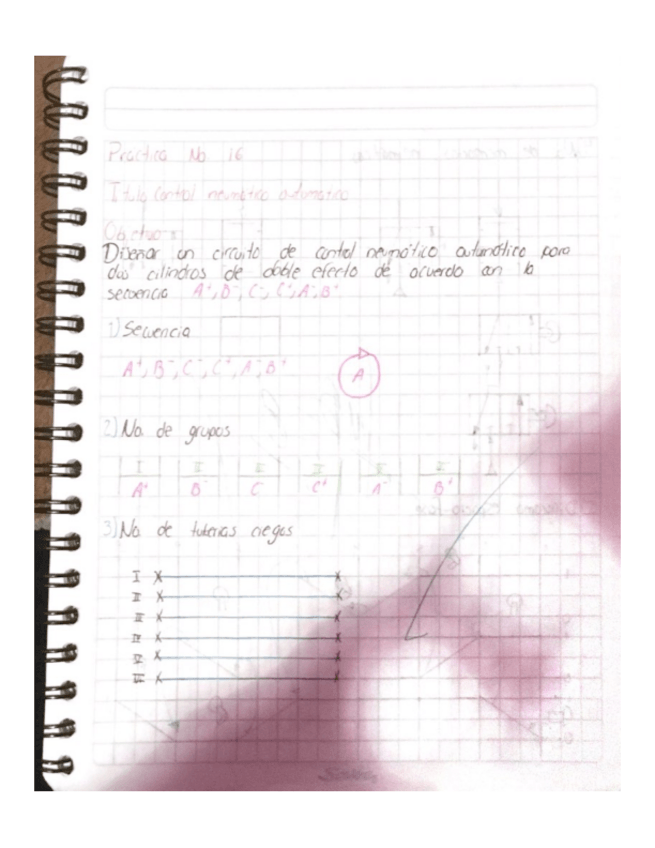 Practica No 16
Titulo Control neumatico automatico
Objetivo
Diseñar un circuito de contol neumático automático para
dos cilindros de doble efecto de acuerdo con la
secuencia A⁺, B⁻, C⁻, C⁺, A⁻, B⁺
1) Secuencia
A⁺, B⁻, C⁻, C⁺, A⁻, B⁺
A
2) No. de grupos
I
A⁺ B⁻ C⁻ C⁺ A⁻ B⁺
3) No. de tuberias ciegas
I X X
II X X
III X X
X X
X X
X X